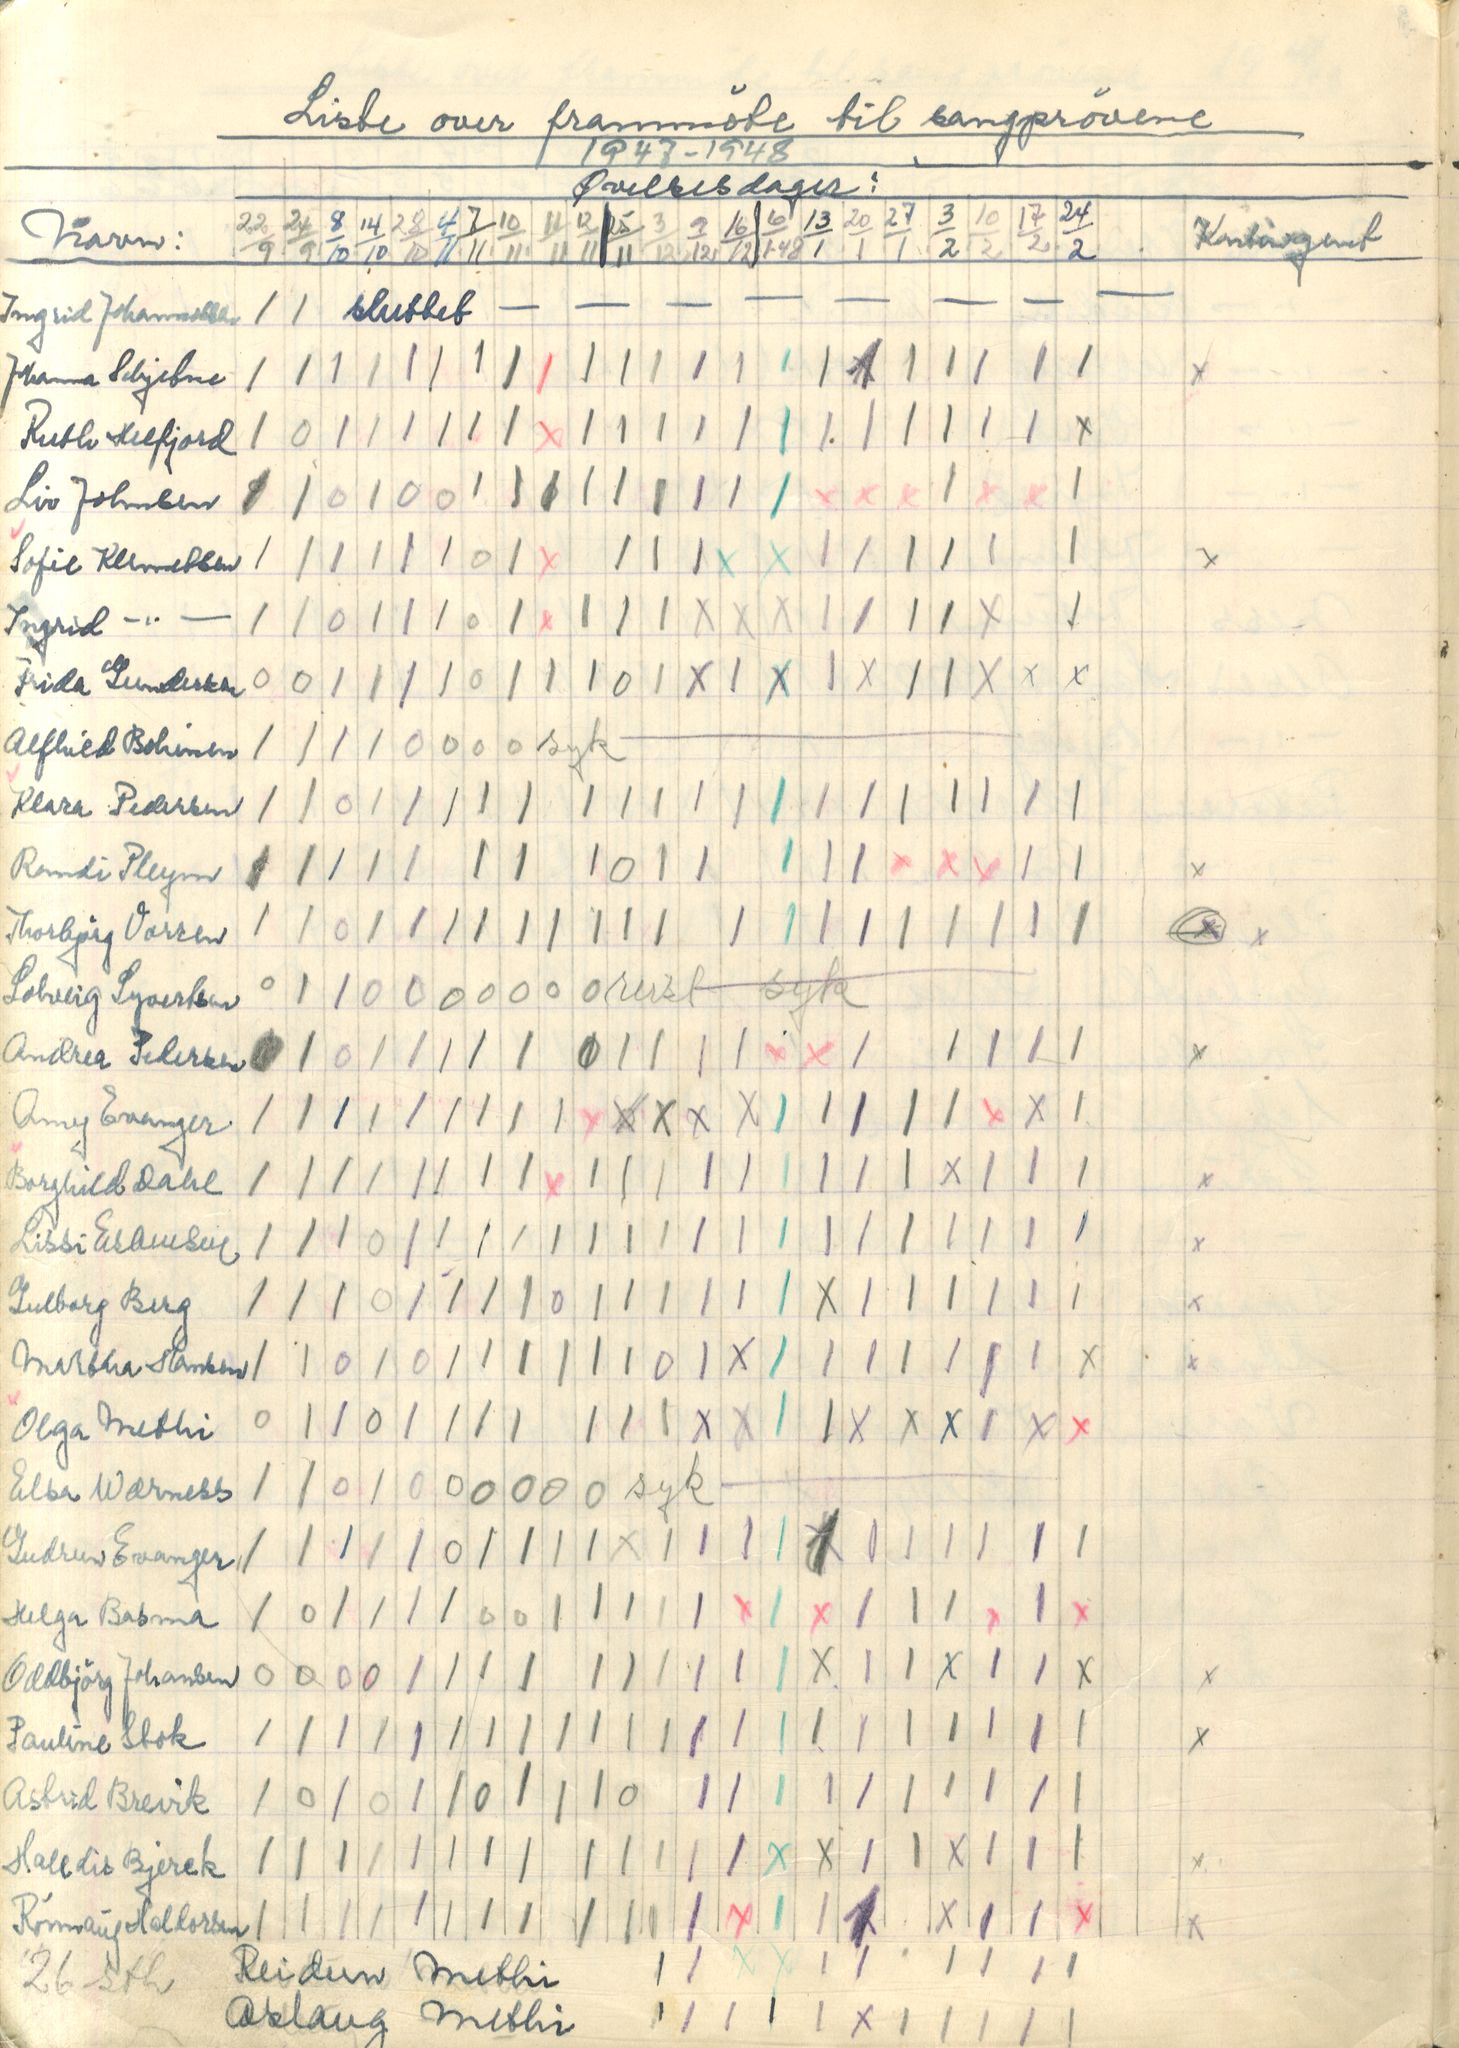 Liste over frammöte til sangprövene
1947-1948
Øvelsesdager:
Navn: 22/9 24/9 8/10 14/10 28/10 4/11 7/11 10/11 11/11 12/11 25/11 3/12 9/12 16/12 6/1-48 13/1 20/1 27/1 3/2 10/2 17/2 24/2 Kontingent
Ingrid / / sluttet — — — — — — — —
Johanna / / / / / / / / / / / / / / / / / / / / / / x
Ruth / 0 / / / / / / x / / / / / / / / / / / / x
Liv Johnsen / / 0 / 0 0 / / / / / / / / / x x x / x x /
Sofie Klemetsen / / / / / / 0 / x / / / x x / / / / / / x
Ingrid -"- / / 0 / / / 0 / x / / / x x x / / / / x /
Frida Gundersen 0 0 / / / / 0 / / / 0 / x / x / x / / x x x
Alfhild Bohinen / / / / 0 0 0 0 syk
Klara Pedersen / / 0 / / / / / / / / / / / / / / / / / /
Randi Pleym / / / / / / / / 0 / / / / / x x x / / x
Thorbjørg Vorren / / 0 / / / / / / / / / / / / / / / / / / x x
Solveig Syvertsen 0 / / 0 0 0 0 0 0 0 reist syk
Andrea Pedersen / 0 / / / / / 0 / / / / x x / / / / / x
Amy Evanger / / / / / / / / / x x x x x / / / / / x x /
Borghild Dahl / / / / / / / / x / / / / / / / / / x / / / x
Lissi / / / 0 / / / / / / / / / / / / / / / / / / x
Gulborg Berg / / / 0 / / / / 0 / / / / / / x / / / / / / x
Martha Hansen / / 0 / 0 / / / / / / 0 / x / / / / / / / x x
Olga Methi 0 / / 0 / / / / / / / x x / / x x x / x x
Elsa Wærness / / 0 / 0 0 0 0 0 0 syk
Gudrun Evanger / / / / / 0 / / / / x / / / / / / / / / /
Helga Basma / 0 / / / / 0 0 / / / / / x / x / / / x / x
Oddbjörg Johansen 0 0 0 0 / / / / / / / / / / x / / x / / x x
Pauline Stok / / / / / / / / / / / / / / / / / / / / / / x
Astrid Brevik / 0 / 0 / / 0 / / / 0 / / / / / / / / / /
Halldis Bjerck / / / / / / / / / / / / / x x / / x / / / x
Rönnaug Haldorsen / / / / / / / / / / / / x / / / x / / x x
26 stk Reidun Methi / / x x / / / / / / /
Aslaug Methi / / / / / x / / / / /